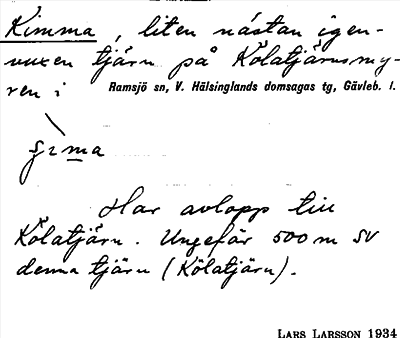 Kimma, liten nästan igen-
vuxen tjärn på Kölatjärnsmy-
ren i Ramsjö sn, V. Hälsinglands domsagas tg, Gävleb. l.
Har avlopp till
Kölatjärn. Ungefär 500 m SV
denna tjärn (Kölatjärn).
LARS LARSSON 1934